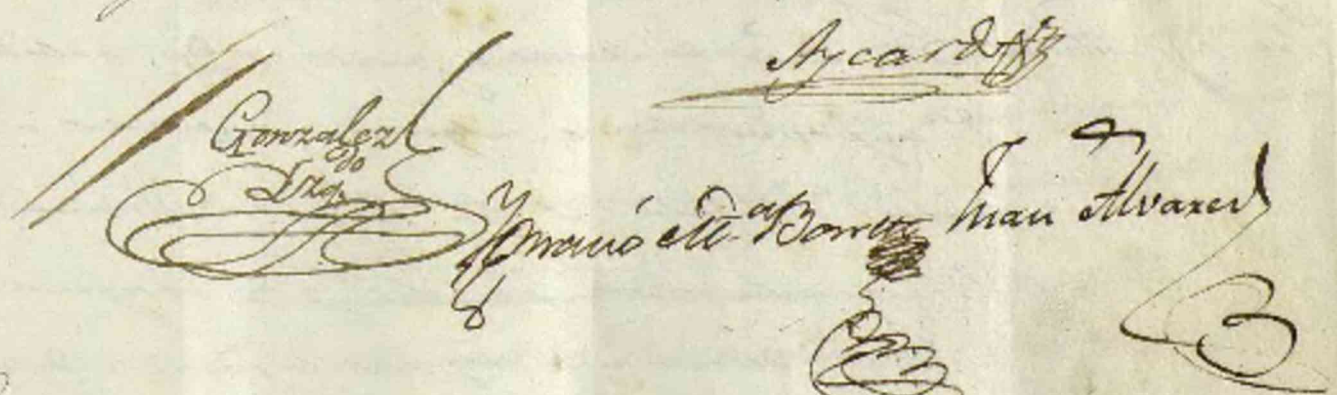 Aycardi
Gonzalez
Izqdo
Ygnacio M.a Borrero Juan Alvarez